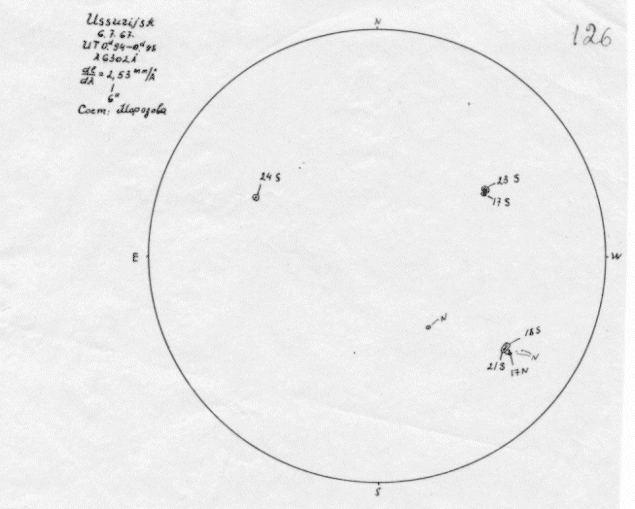 Ussurijsk
6.7.67.
UT 0,ᵈ94-0,ᵈ98
λ6302Å
dl/dλ = 2,53 mm/Å
1
Сост: Морозова
126
N
24 S
23 S
17 S
E
W
N
18 S
N
21 S
17 N
S